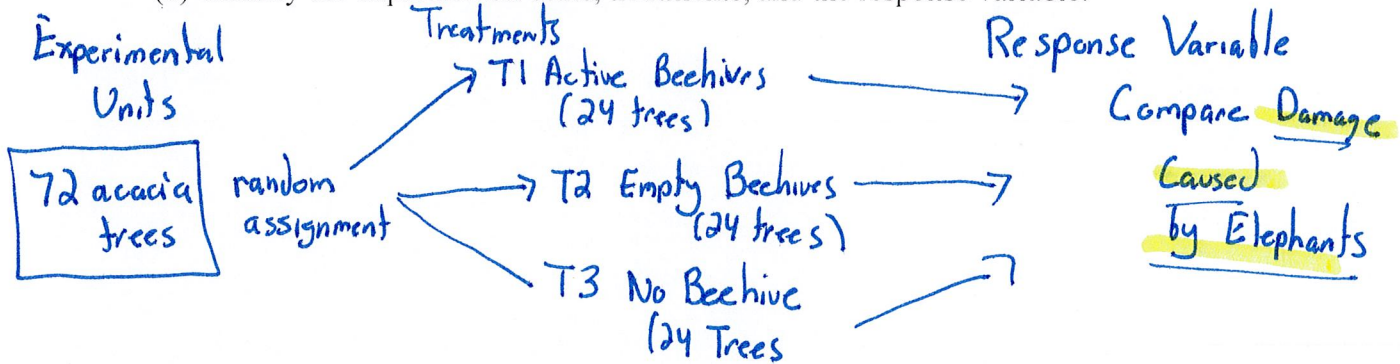 Experimental
Units
72 acacia
trees
random
assignment
Treatments
T1 Active Beehives
(24 trees)
T2 Empty Beehives
(24 trees)
T3 No Beehive
(24 Trees
Response Variable
Compare Damage
Caused
by Elephants